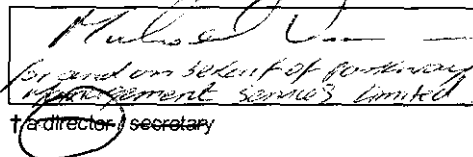 for and on behalf of parkway
management services limited
† a director / secretary